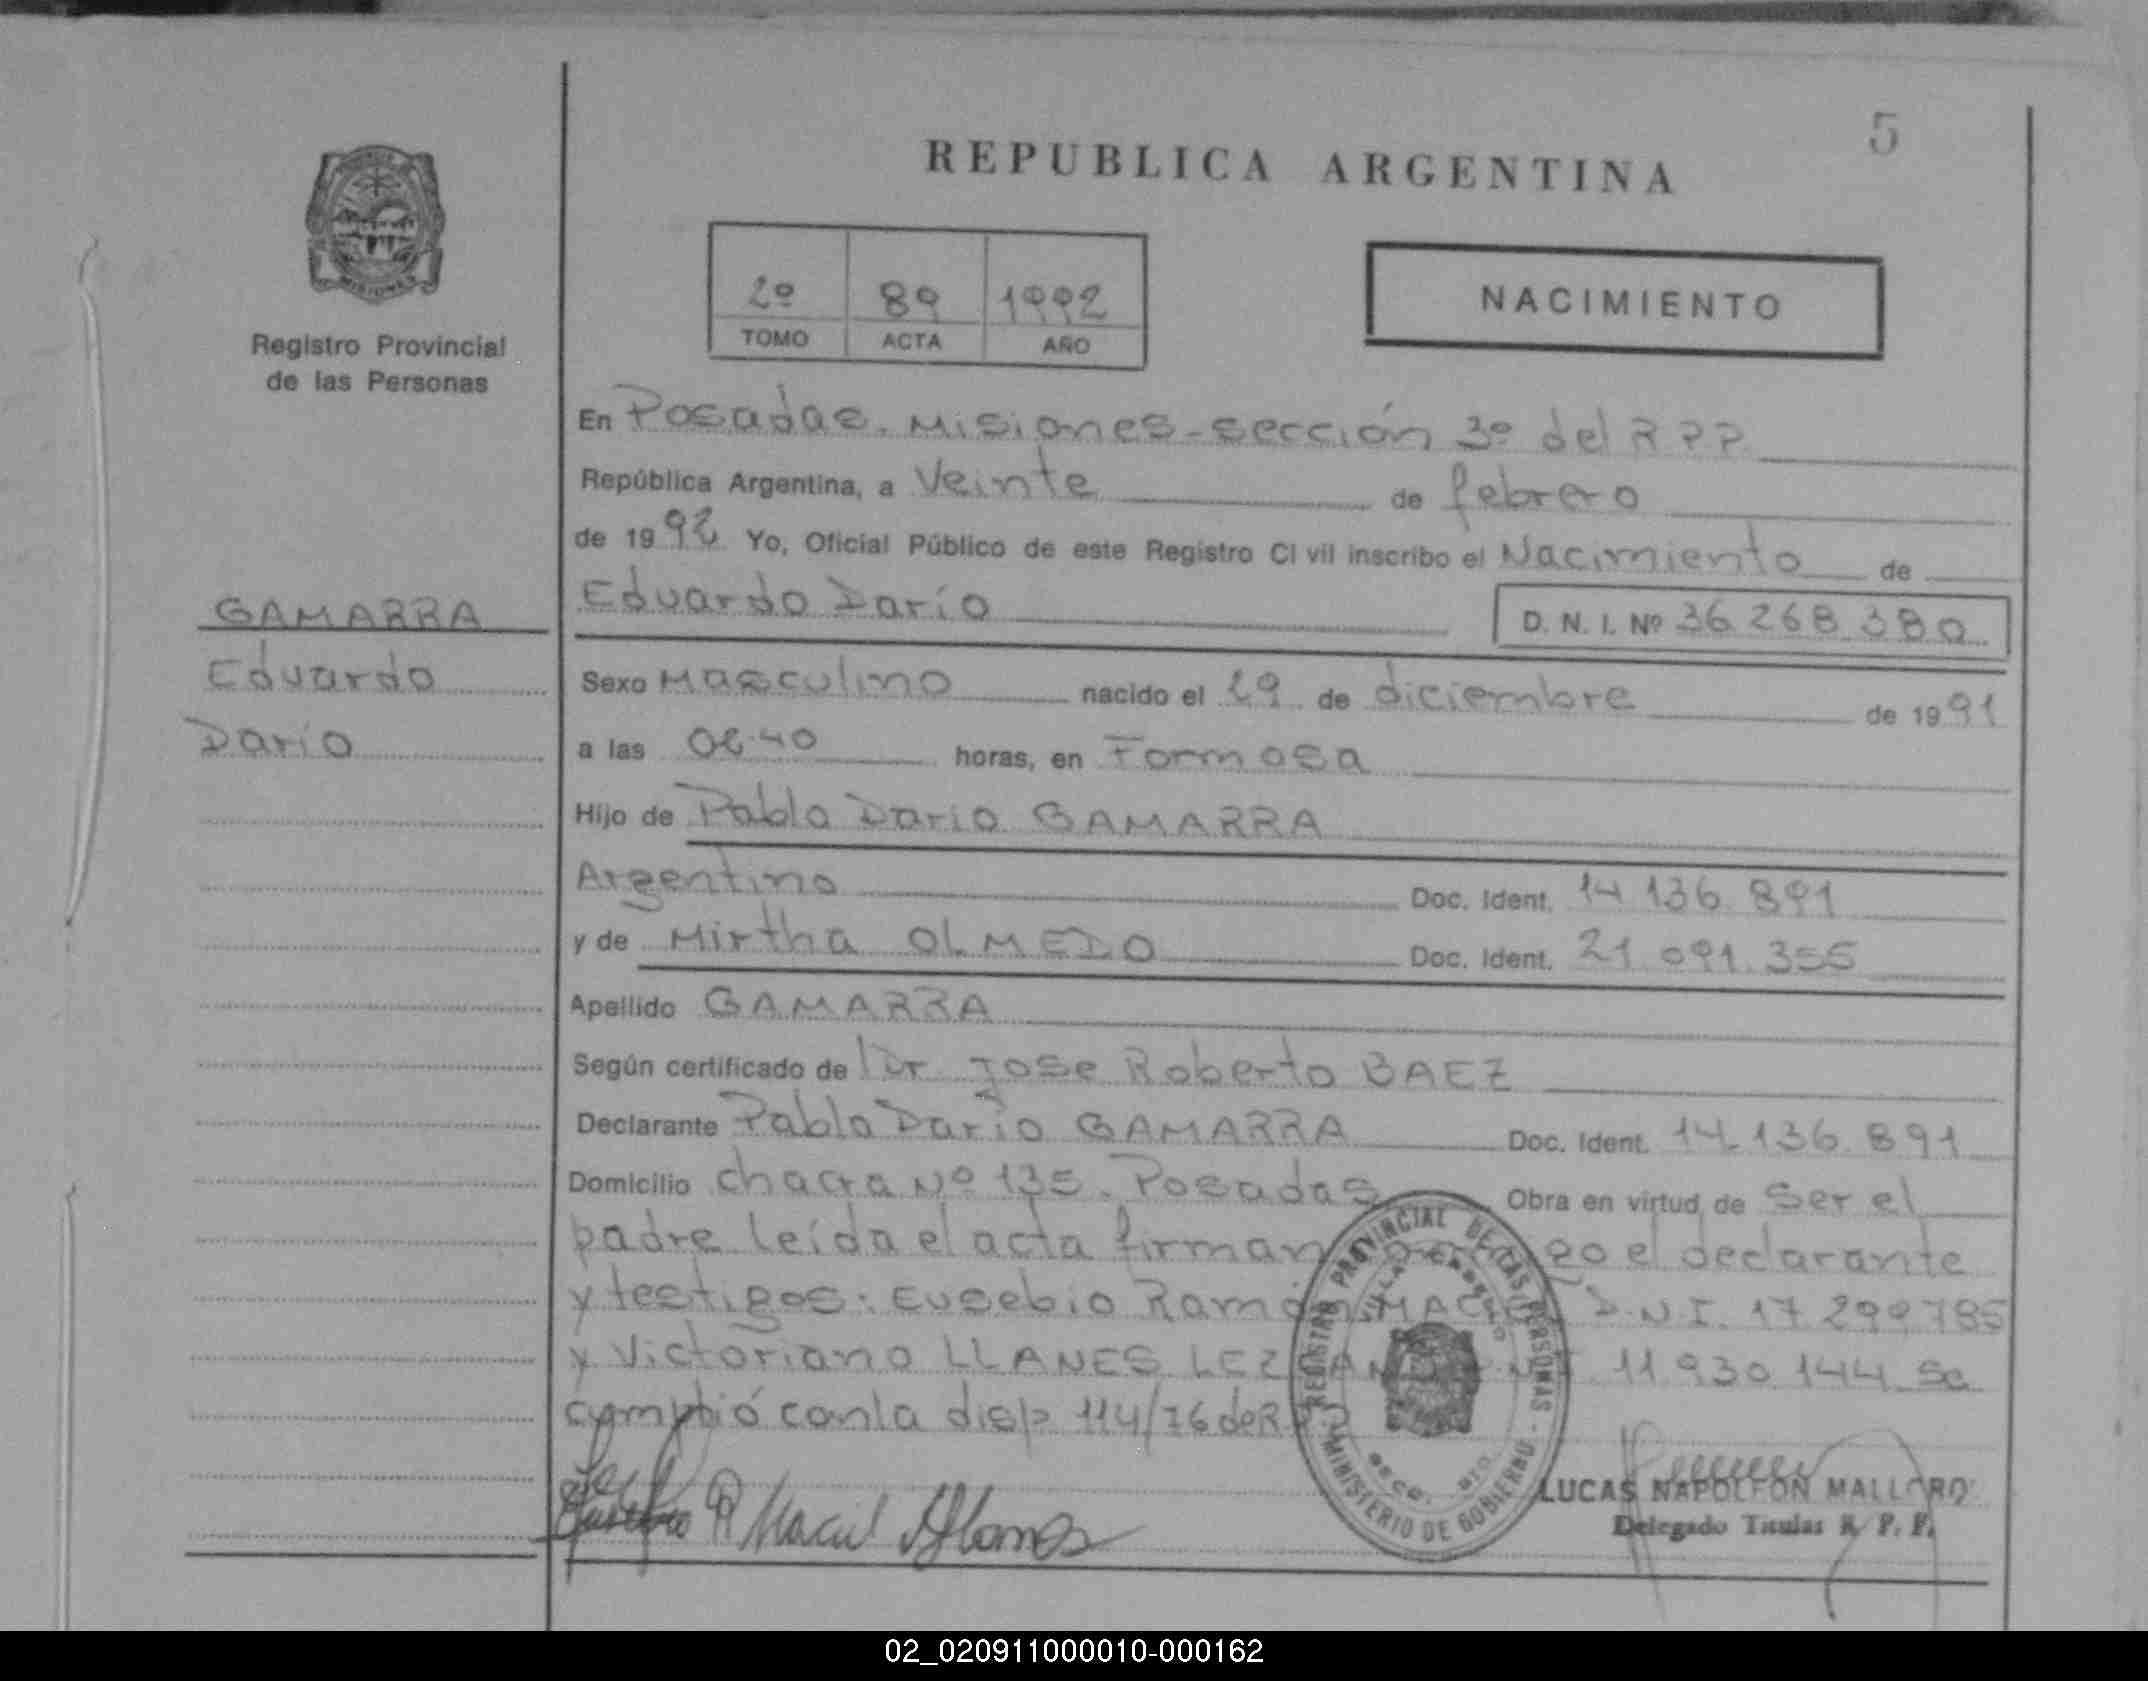 5
REPUBLICA ARGENTINA
MISIONES
Registro Provincial
de las Personas
2º 89 1992
TOMO ACTA AÑO
NACIMIENTO
En Posadas. Misiones-sección 3º del R P P.
República Argentina, a Veinte de febrero
de 1992 Yo, Oficial Público de este Registro Ci vil inscribo el Nacimiento de
GAMARRA
Eduardo
Darío
Eduardo Darío
D. N. I. Nº 36.268.380
Sexo Masculino nacido el 29 de diciembre de 1991
a las 02.40 horas, en Formosa
Hijo de Pablo Dario GAMARRA
Argentino Doc. Ident. 14.136.891
y de Mirtha OLMEDO Doc. Ident. 21.091.355
Apellido GAMARRA
Según certificado de Dr. Jose Roberto BAEZ
Declarante Pablo Dario GAMARRA Doc. Ident. 14.136.891
Domicilio chacra Nº 135. Posadas Obra en virtud de Ser el
padre leída el acta firman el declarante
y testigos: Eusebio Ramón D.N.I. 17.299.785
y Victoriano LLANES 11.930.144 Se
cumplió con la disp. 114/76 de R.P.P
REGISTRO PROVINCIAL DE LAS PERSONAS - MINISTERIO DE GOBIERNO -
LUCAS NAPOLEON MALLORO
Delegado Titular R. P. P.
02_020911000010-000162